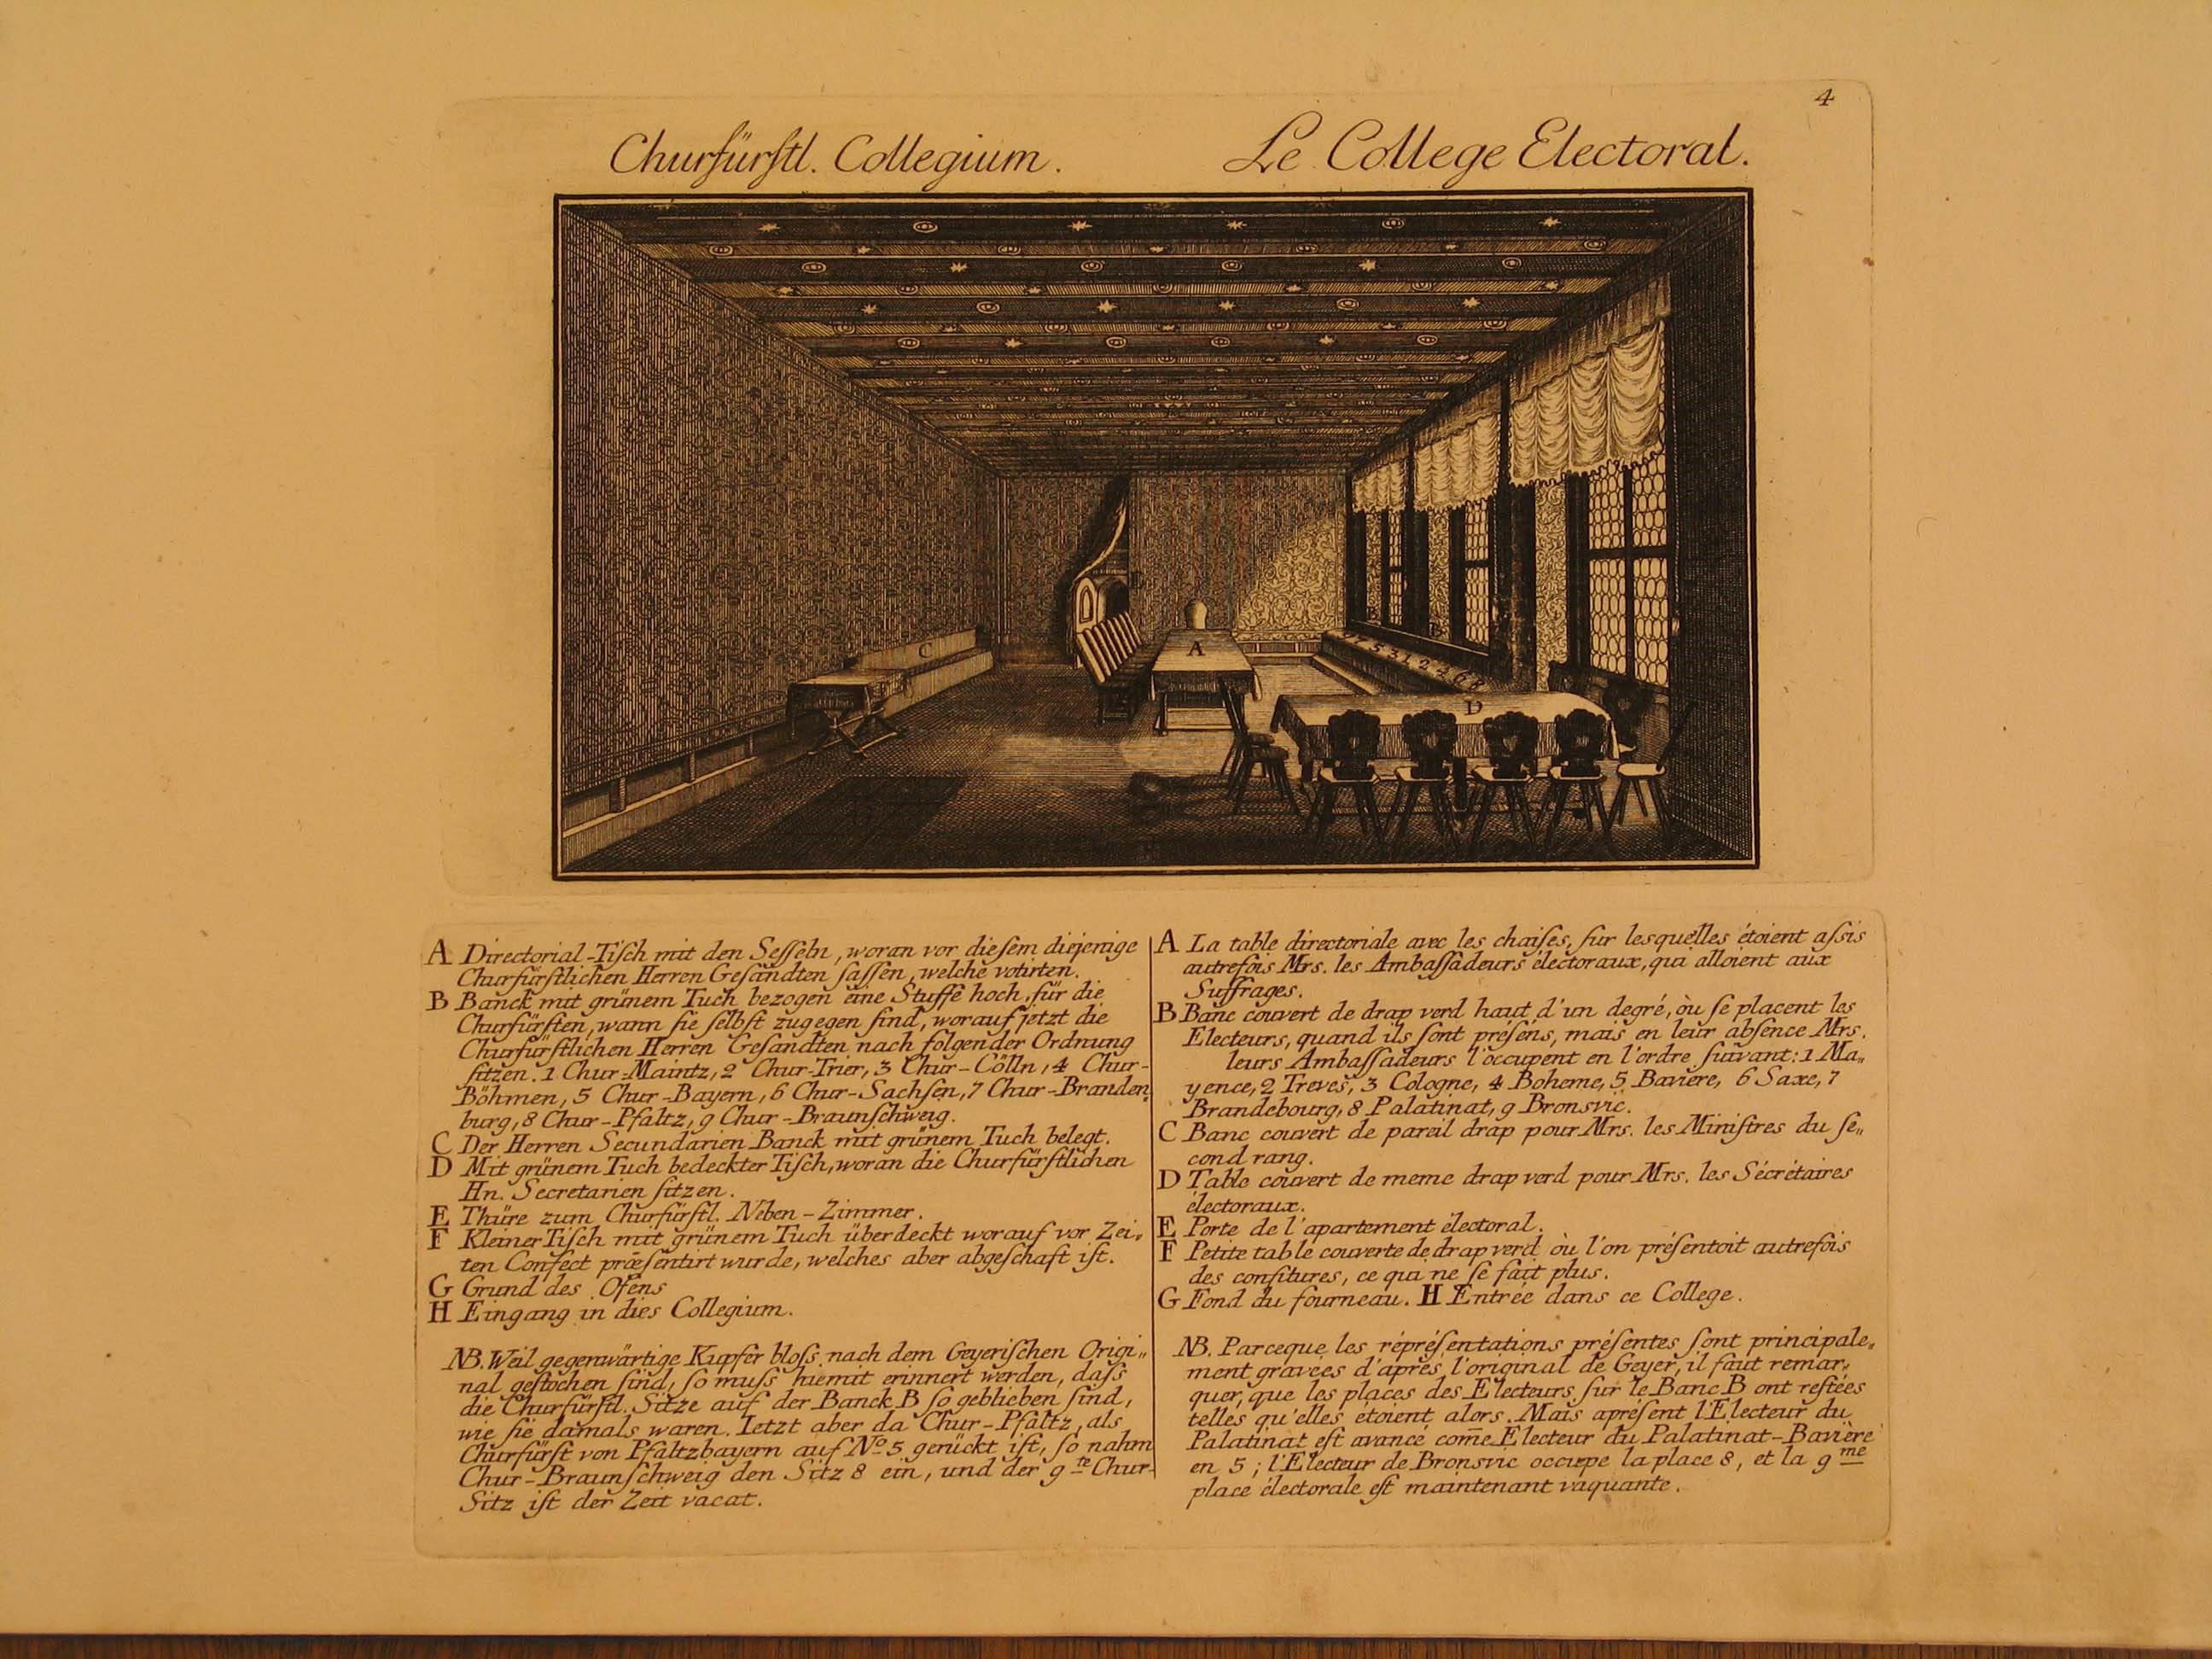 4
Churfürſtl. Collegium.
Le College Electoral.
A
B
C
D
7 5 3 1 2 4 6 8
A Directorial-Tiſch mit den Seſſeln, woran vor dieſem diejenige
Churfürſtlichen Herren Geſandten ſaſſen, welche votirten.
B Banck mit grünem Tuch bezogen eine Stuffe hoch, für die
Churfürſten, wann ſie ſelbſt zugegen ſind, worauf jetzt die
Churfürſtlichen Herren Geſandten nach folgender Ordnung
ſitzen. 1 Chur-Maintz, 2 Chur-Trier, 3 Chur-Cölln, 4 Chur-
Böhmen, 5 Chur-Bayern, 6 Chur-Sachſen, 7 Chur-Branden„
burg, 8 Chur-Pfaltz, 9 Chur-Braunſchweig.
C Der Herren Secundarien Banck mit grünem Tuch belegt.
D Mit grünem Tuch bedeckter Tiſch, woran die Churfürſtlichen
Hn. Secretarien ſitzen.
E Thüre zum Churfürſtl. Neben-Zimmer.
F Kleiner Tiſch mit grünem Tuch überdeckt worauf vor Zei„
ten Confect præſentirt wurde, welches aber abgeſchaft iſt.
G Grund des Ofens
H Eingang in dies Collegium.
NB. Weil gegenwärtige Kupfer bloſs nach dem Geyeriſchen Origi„
nal geſtochen ſind, ſo muſs hiemit erinnert werden, daſs
die Churfürſtl. Sitze auf der Banck B ſo geblieben ſind,
wie ſie damals waren. Ietzt aber da Chur-Pfaltz, als
Churfürſt von Pfaltzbayern auf No. 5 gerückt iſt, ſo nahm
Chur-Braunſchweig den Sitz 8 ein, und der 9te Chur-
Sitz iſt der Zeit vacat.
A La table directoriale avec les chaiſes, ſur lesquelles étoient aſsis
autrefois Mrs. les Ambaſſadeurs électoraux, qui alloient aux
Suffrages.
B Banc couvert de drap verd haut d'un degré, òu ſe placent les
Electeurs, quand ils ſont préſéns, mais en leur abſence Mrs.
leurs Ambaſſadeurs l'occupent en l'ordre ſuivant: 1 Ma„
yence, 2 Treves, 3 Cologne, 4 Boheme, 5 Baviere, 6 Saxe, 7
Brandebourg, 8 Palatinat, 9 Bronsvic.
C Banc couvert de pareil drap pour Mrs. les Miniſtres du ſe„
cond rang.
D Table couvert de meme drap verd pour Mrs. les Sécrétaires
électoraux.
E Porte de l'apartement électoral.
F Petite table couverte de drap verd òu l'on préſentoit autrefois
des confitures, ce qui ne ſe fait plus.
G Fond du fourneau. H Entrée dans ce College.
NB. Parceque les répréſentations préſentes ſont principale„
ment gravées d'après l'original de Geyer, il faut remar„
quer, que les places des Electeurs ſur le Banc B ont reſtées
telles qu'elles étoient alors. Mais apréſent l'Electeur du
Palatinat eſt avancé com̃e Electeur du Palatinat-Baviere
en 5; l'Electeur de Bronsvic occupe la place 8, et la 9me
place électorale eſt maintenant vaquante.